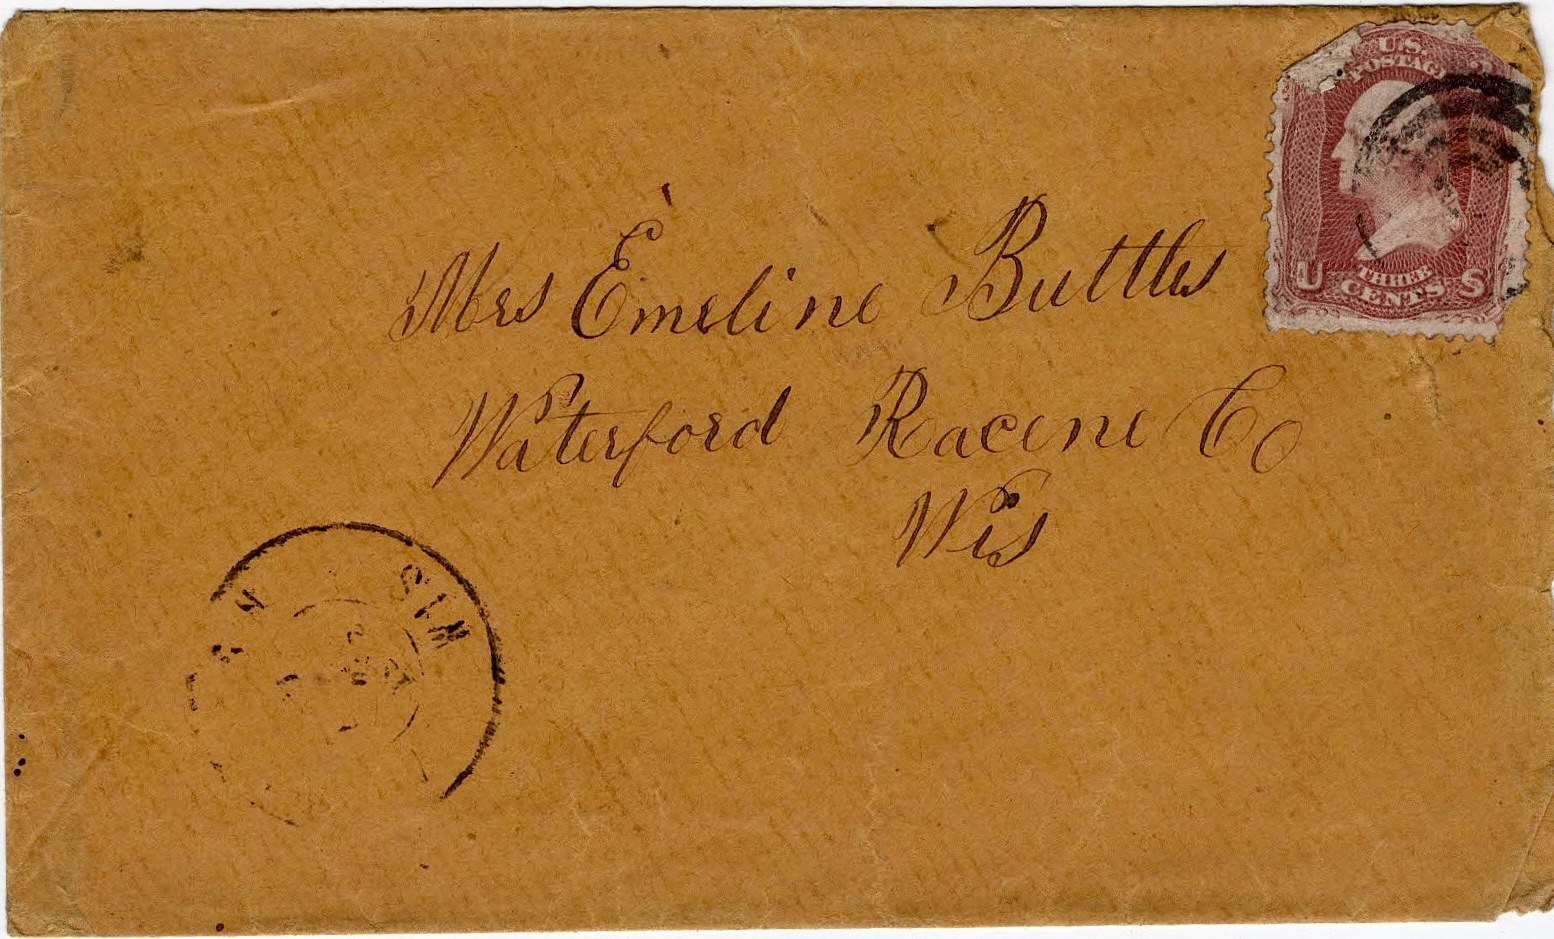 U.S. POSTAGE
THREE
U CENTS S
Mrs Emeline Buttles
Waterford Racine Co
Wis
WIS